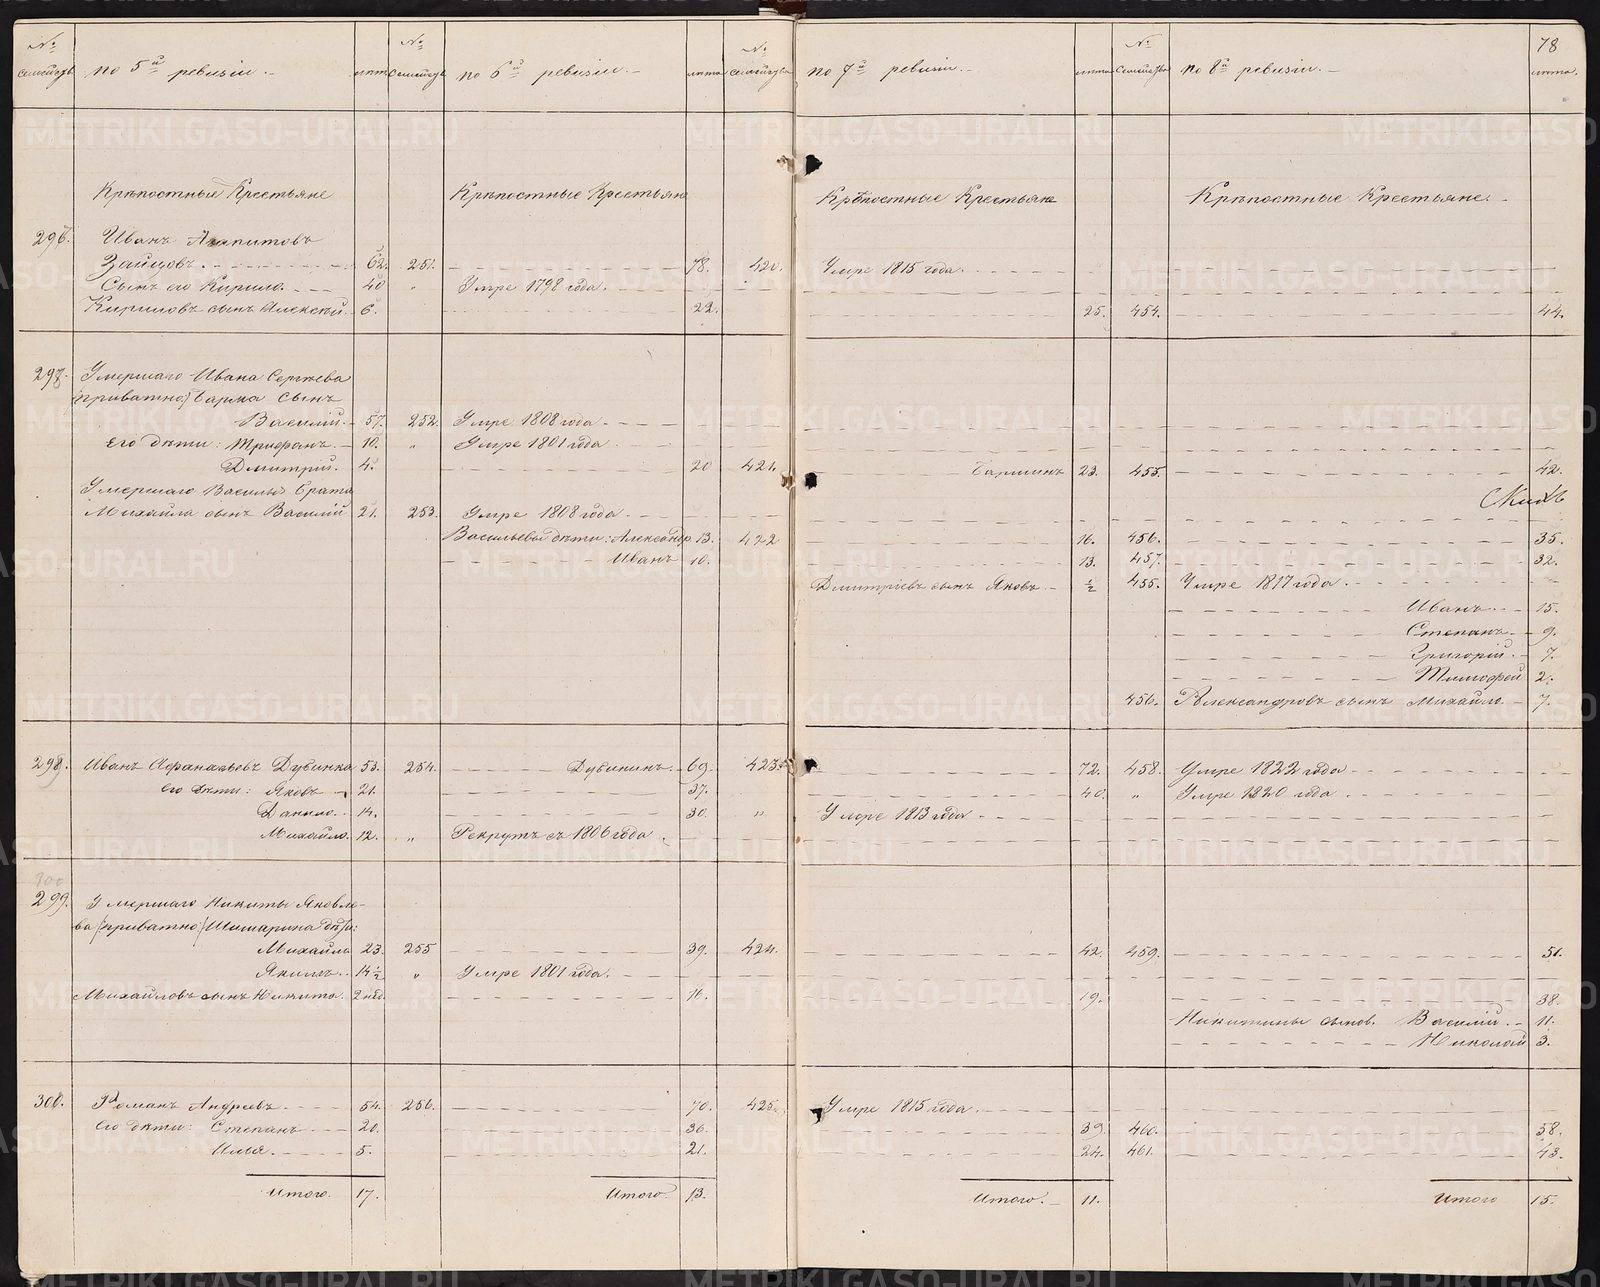 № семейства по 5й ревизiи. лѣта № Семейства по 6й ревизiи. лѣта № семейства по 7й ревизiи. лѣта № Семейства по 8й ревизiи. 78 лѣта.
Крѣпостные Крестьяне Крѣпостные Крестьяне Крѣпостные Крестьяне Крѣпостные Крестьяне.
296. Иванъ Агапитовъ
Зайцовъ. 62. 251. 78. 420. Умре 1815 года.
Сынъ его Кирило. 40 " Умре 1798 года.
Кириловъ сынъ Алексѣй. 6. 22. 25. 454. 44.
297. Умершаго Ивана Сергѣева
/приватно/ Барма Сынъ
Василiй. 57. 252. Умре 1808 года.
его дѣти: Трифанъ. 10. " Умре 1801 года
Дмитрiй. 4. 20 421. Барминъ 23. 455. 42.
Умершаго Василья брата
Михайла сынъ Василiй 21. 253. Умре 1808 года.
Васильевы дѣти: Александр 13. 422 16. 456. 35.
Иванъ 10. 13. 457. 32.
Дмитрiевъ сынъ Яковъ. ½ 455. Умре 1817 года.
Иванъ. 15.
Степанъ. 9.
Григорiй. 7.
Тимофей 2.
456. Александровъ сынъ Михайло 7.
298. Иванъ Афанасьевъ Дубинка 53. 254. Дубининъ. 69. 423. 72. 458. Умре 1822 года
его дѣти: Яковъ 21. 37. 40. " Умре 1820 года.
Данило. 14. 30. " Умре 1813 года
Михайло. 12. " Рекрутъ съ 1806 года.
300
299. Умершаго Никиты Яковле-
ва /приватно/ Шишарина дѣти:
Михайло 23. 255 39. 424. 42. 459. 51.
Якимъ. 14½ " Умре 1801 года.
Михайловъ сынъ Никита. 2 нед. 16. 19. 38.
Никитины сынов. Василiй. 11.
Николай 3.
300. Романъ Андреевъ. 54. 256. 70. 425. Умре 1815 года.
его дѣти: Степанъ 20. 36. 39. 460. 58.
Илья. 5. 21. 24. 461. 43.
Итого. 17. Итого. 13. Итого. 11. Итого 15.
METRIKI.GASO-URAL.RU